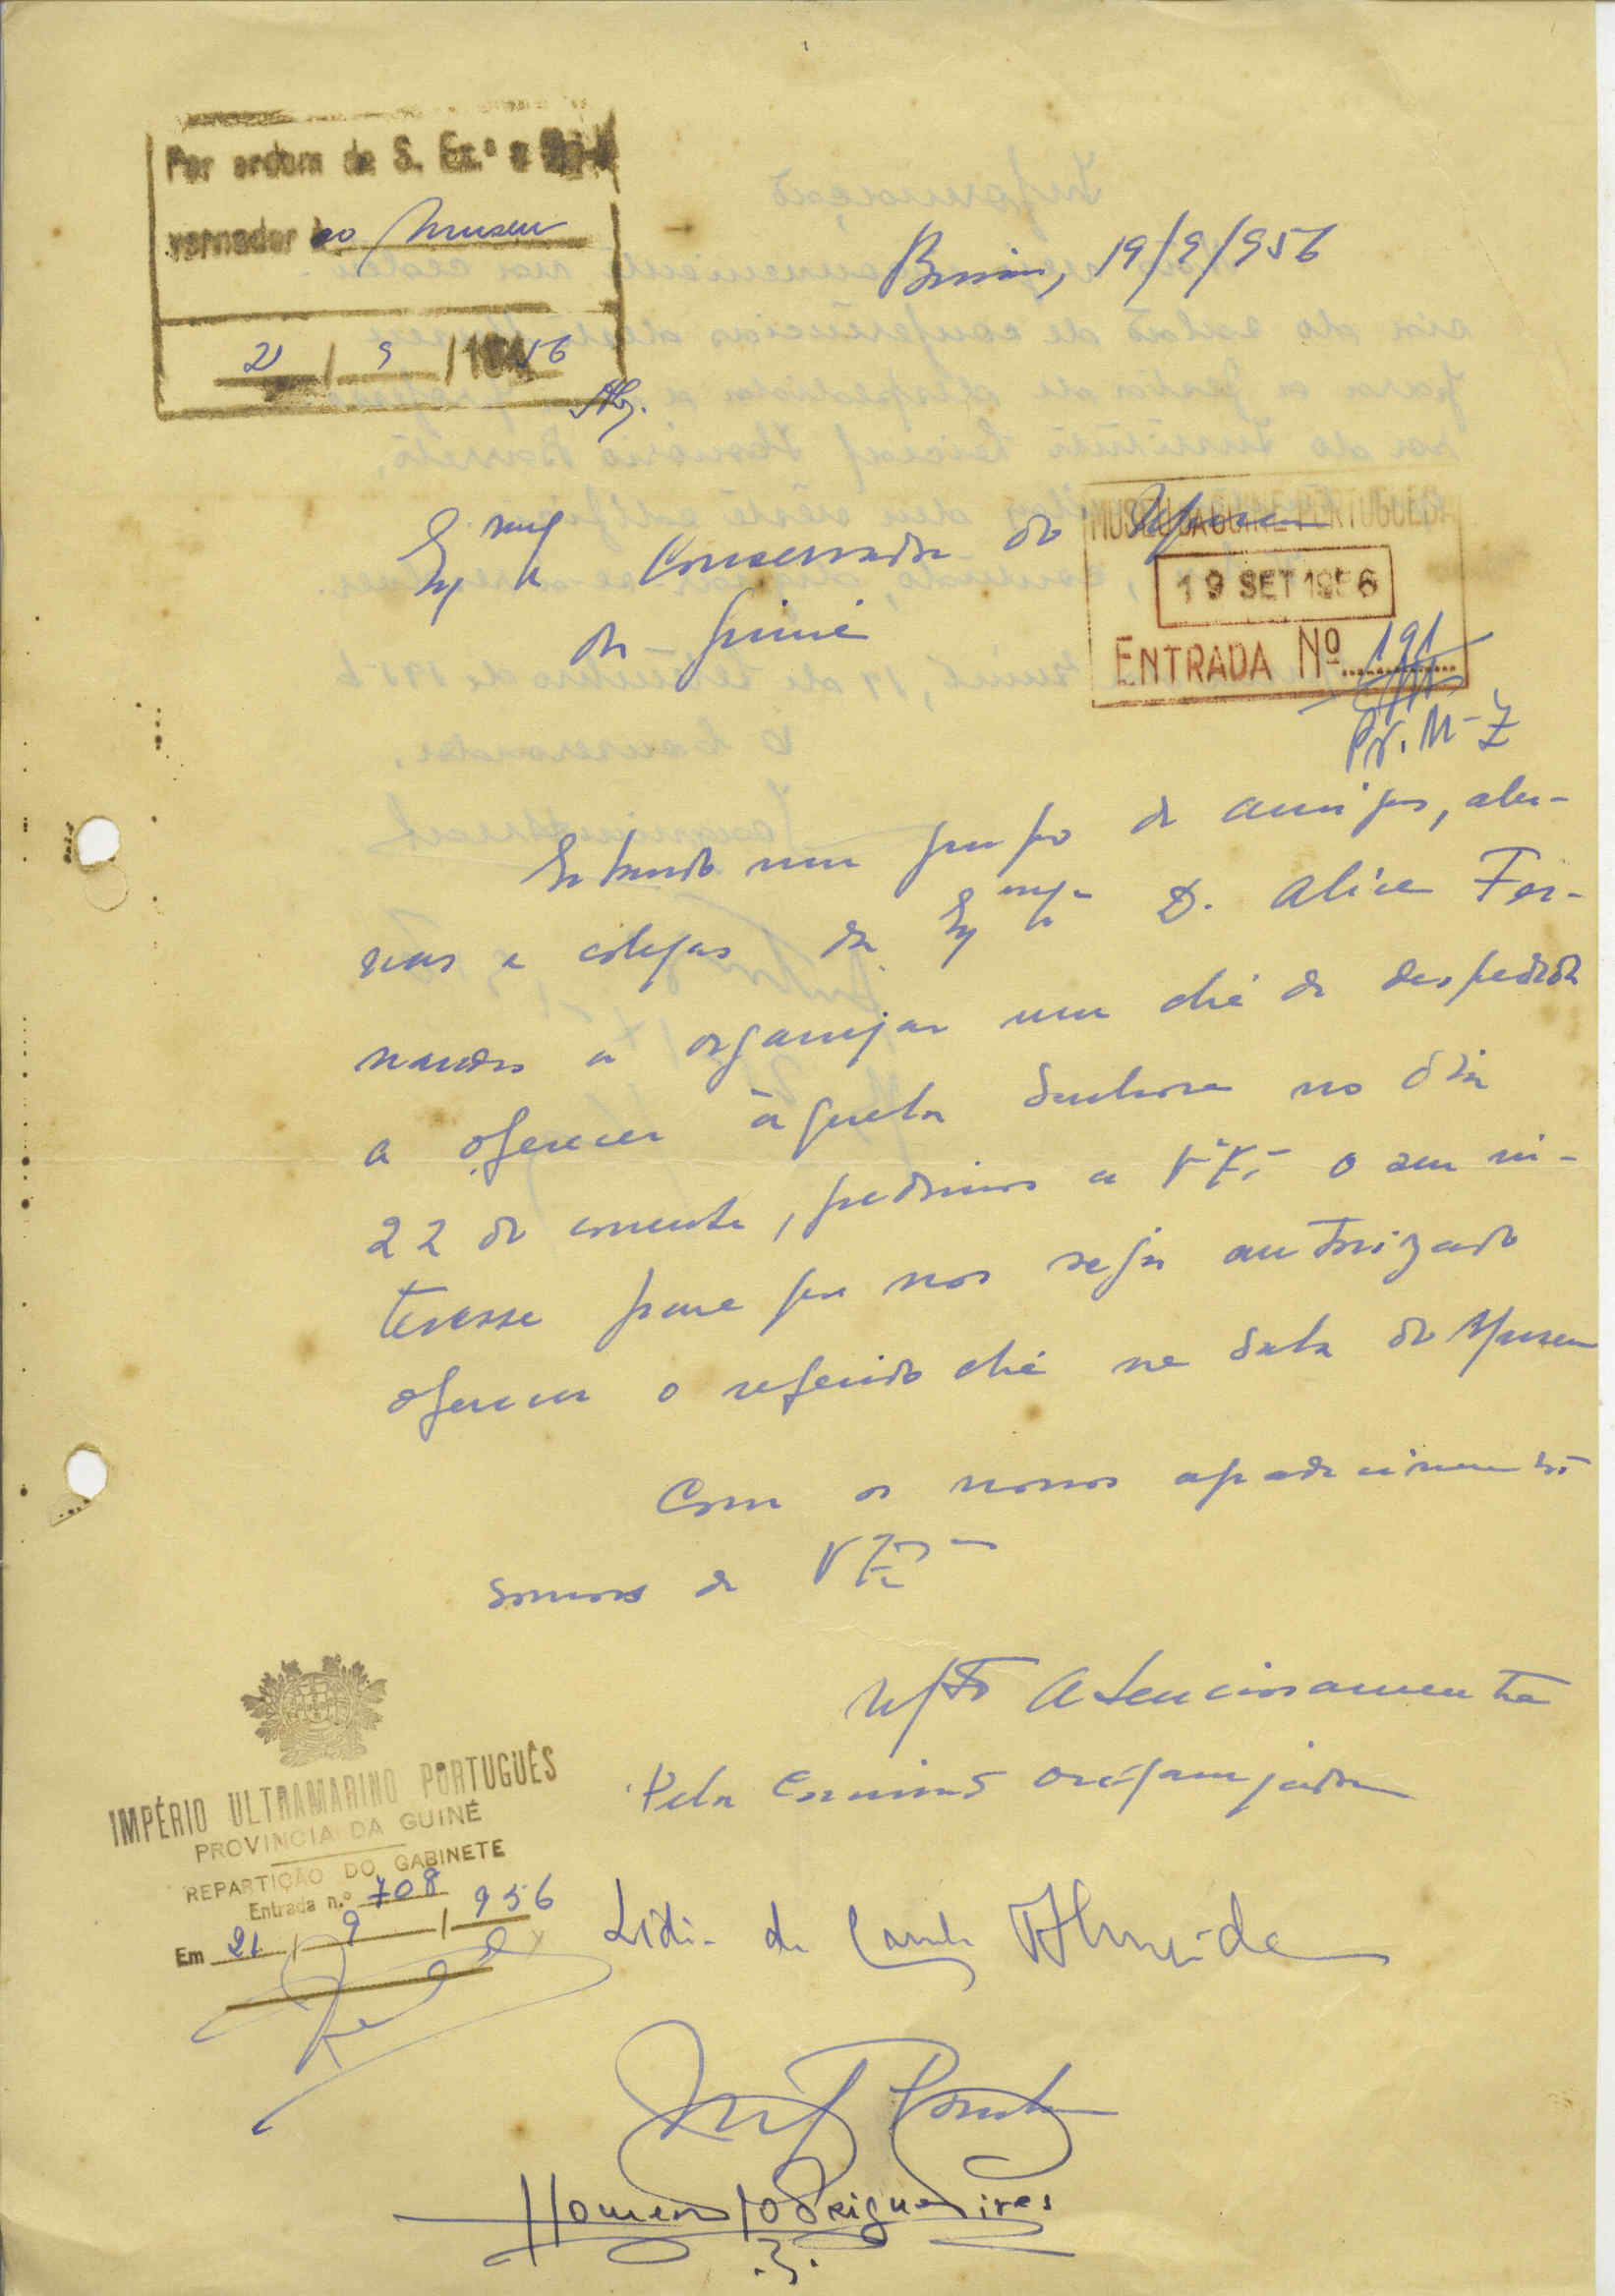 Por ordem de S. Ex.ª o
vernador ao Museu
21 / 9 / 1956
Bissau, 19/9/956
MUSEU DA GUINÉ PORTUGUESA
19 SET 1956
ENTRADA Nº 191
Pr. M-Z
Exmº Conservador do Museu
da Guiné
Estando um grupo de amigos, alu-
nos e colegas da Exmª D. Alice Fer-
nandes a organizar um chá de despedida
a oferecer àquela Senhora no dia
22 do corrente, pedimos a V. Exª o seu in-
teresse para que nos seja autorizado
oferecer o referido chá na sala do Museu
Com os nossos agradecimentos
somos de V. Exª
Mtº Atenciosamente
Pela Comissão organizadora
IMPÉRIO ULTRAMARINO PORTUGUÊS
PROVINCIA DA GUINÉ
REPARTIÇÃO DO GABINETE
Entrada n.º 708
Em 21 / 9 / 956
Almeida
Homero Rodrigues Pires